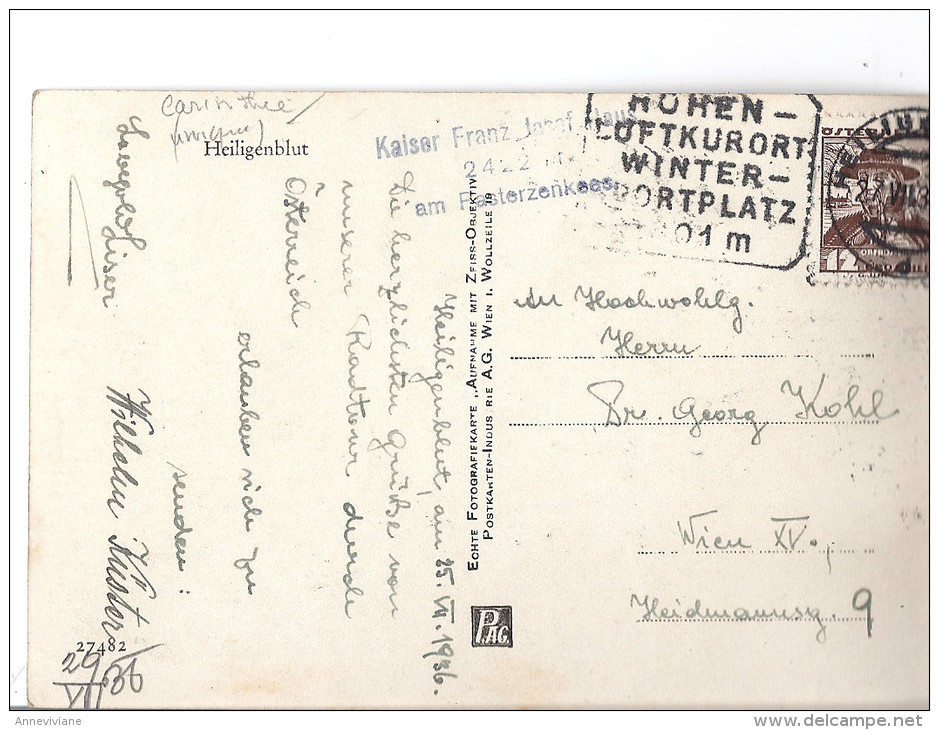 Carinthie
Heiligenblut
Kaiser Franz Josef Haus
2422 m
am Pasterzenkees
HÖHEN-
LUFTKURORT
WINTER-
SPORTPLATZ
1301 m
ÖSTERR
12
Heiligenblut, am 25. VII. 1936.
Die herzlichsten Grüße von
unserer Radtour durch
Österreich
erlauben sich zu
senden:
Wilhelm Küster
Liser
ECHTE FOTOGRAFIEKARTE „AUFNAHME MIT ZEISS-OBJEKTIV
POSTKARTEN-INDUS RIE A.G. WIEN I. WOLLZEILE 19
PAG.
An Hochwohlg.
Herrn
Dr. Georg Kohl
Wien XV.,
Heidmannsg. 9
27482
29/VII 36
Anneviviane
delcampe.net